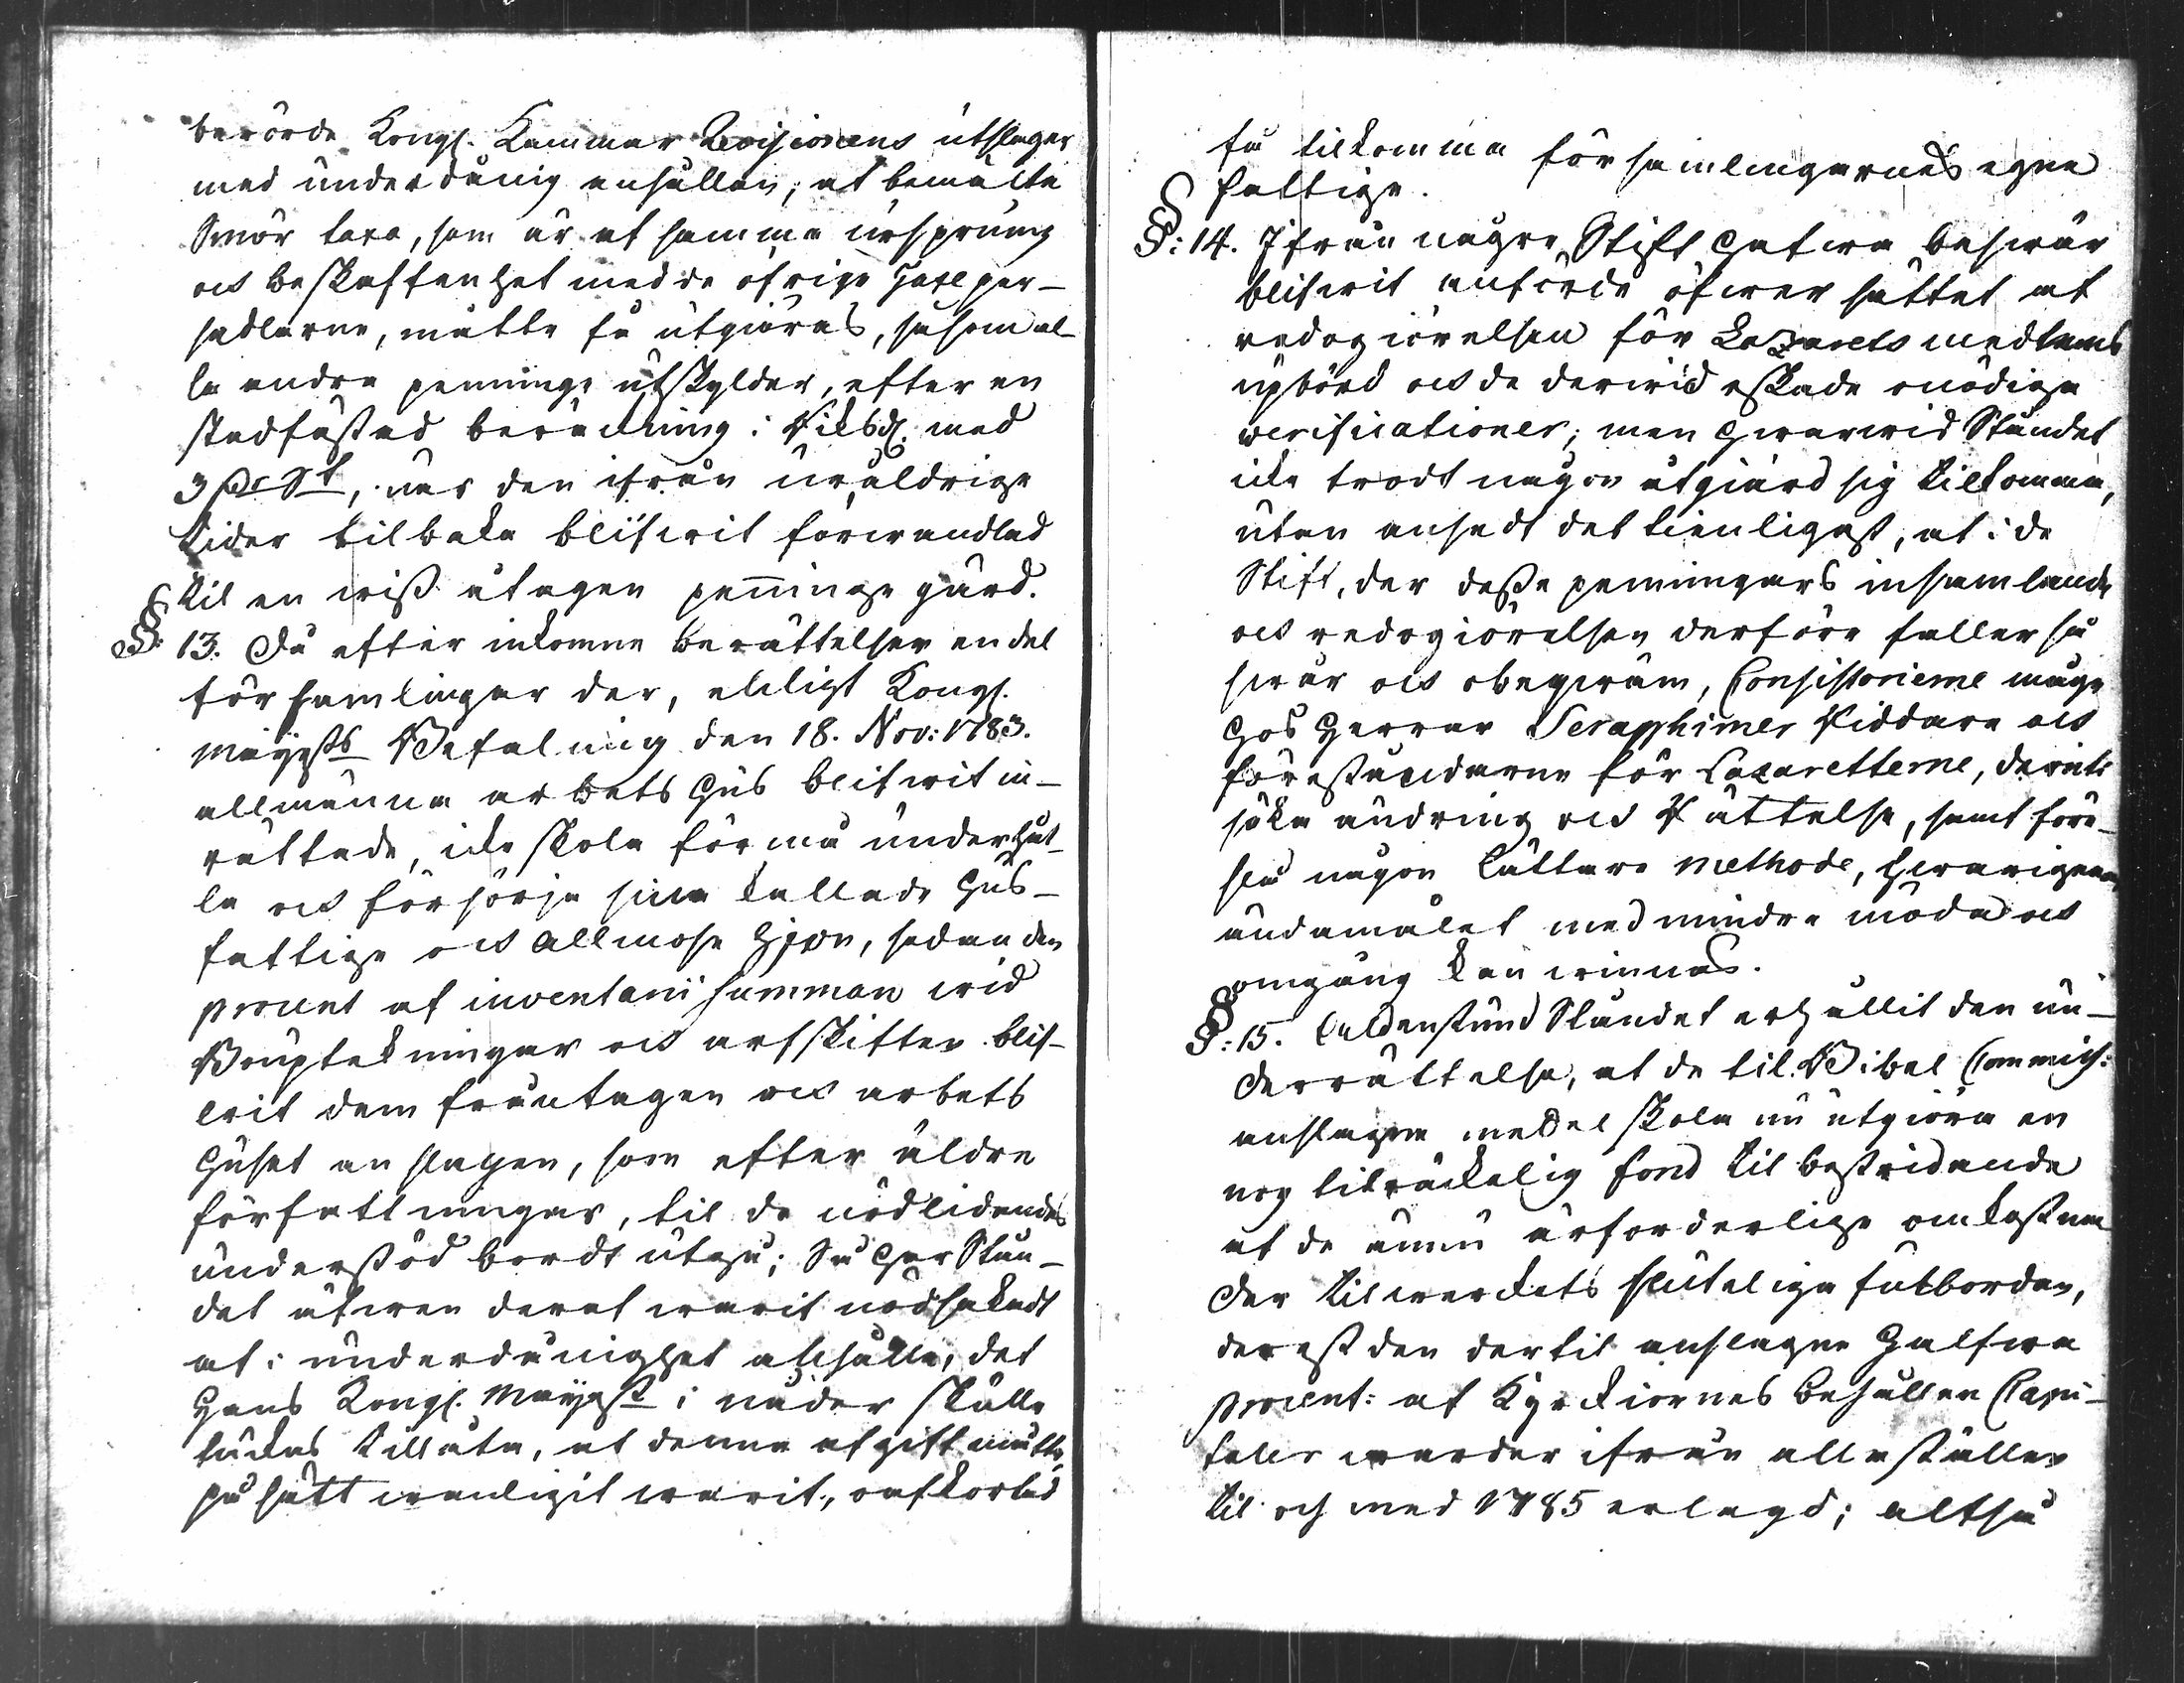 berörde Kongl. Kammar Revisionens utslager
med underdånig anhållan, at bemälte
Smör taxa, som är af samma ursprung
och beskaffenhet med de öfrige Jaxe per-
sedlarne, måtte få utgiöras, såsom al-
la andra penninge utskylder, efter en
stadfästad beräckning i Riksd. med
3 pr St, när den ifrån uråldrige
tider tilbaka blifwit förwandlad
til en wiss utagen penninge gärd.
§: 13. Då efter inkomne berättelser en del
församlingar der, enligt Kongl.
Maÿsts Befalning den 18. Nov: 1783.
allmänna arbets hus blifwit in-
rättade, icke skola förmå underhål-
la och försörja sina kallade hus-
fattige och allmose hjon, sedan den
procent af inventarii summan wid
Bouptekningar och arfskiften blif-
wit dem fråntagen och arbets
huset anslagen, som efter äldre
författningar, til de nödlidandes
understöd bordt utgå; Så har Stån-
det äfwen deraf warit nödsakadt
at i underdånighet anhålla, det
Hans Kongl. Maÿst i nåder skulle
täckas tillåta, at denne afgift måtte,
på sätt wanligit warit, oafkortad
få tilkomma församlingarnes egne
fattige.
§: 14. Ifrån någre Stift hafwa beswär
blifwit anförde öfwer sättet at
redogiörelsen för Lazarets medlens
upbörd och de derwid äskade onödige
verificationer; men hwarwid Ståndet
icke trodt någon åtgiärd sig tilkomma,
utan ansedt det tienligast, at i de
Stift, der desse penningars insamlande
och redogiörelsen derföre faller så
swår och obeqwäm, Consistorierne måge
hos Herrar Seraphimer Riddare och
föreståndarne för Lazaretterne, deruti
söka ändring och Rättelse, samt före-
slå någon lättare methode, hwarigenom
ändamålet med mindre möda och
omgång kan winnas.
§: 15. Aldenstund Ståndet erhållit den un-
derrättelse, at de til Bibel Commiss:
anslagne medel skola nu utgiöra en
nog tilräckelig fond til bestridande
af de ännu ärforderlige omkostna
der til werckets slutelige fulbordan,
derest den dertil anslagne halfwa
procent: af Kyrckiornes behållen Capi-
taler warder ifrån alla ställen
til och med 1785 erlagd; altså